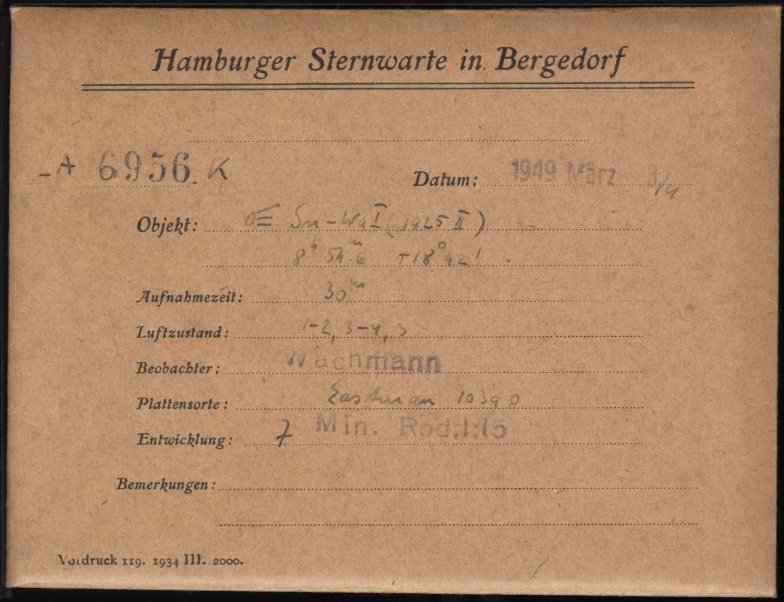 Hamburger Sternwarte in Bergedorf
A 6956. K
Datum: 1949 März 3/4
Objekt: Sw-Wa I (1925 II)
8h 54m6 +18°42'
Aufnahmezeit: 30m
Luftzustand: 1-2, 3-4, 3
Beobachter: Wachmann
Plattensorte: Eastman 103a O
Entwicklung: 7 Min. Rod.1:15
Bemerkungen:
Vordruck 119. 1934 III. 2000.